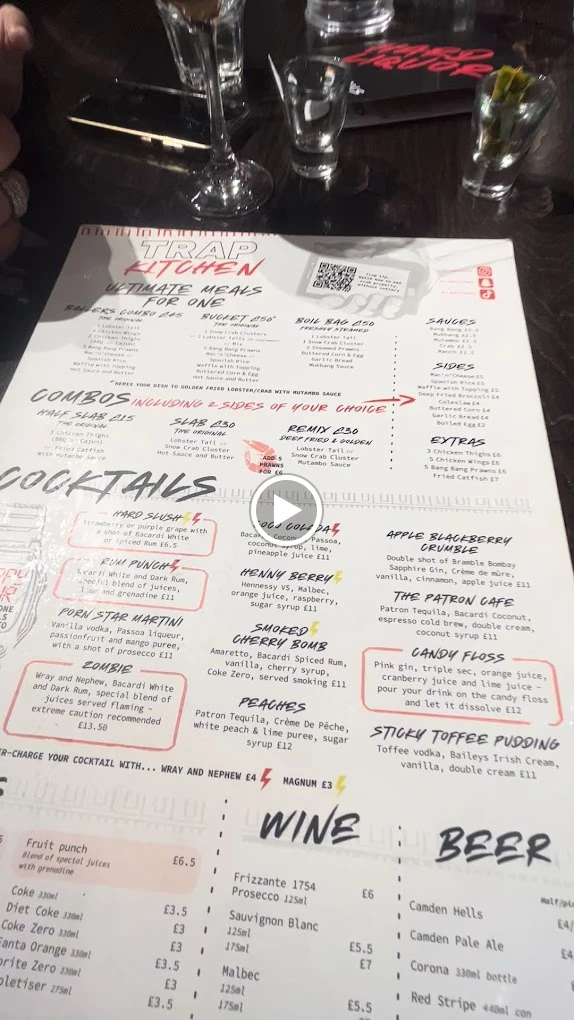 HARD
LIQUOR
TRAP
KITCHEN
ULTIMATE MEALS
FOR ONE
BAILERS COMBO £45
THE ORIGINAL
1 Lobster Tail
Chicken Wings
Chicken Thighs
5 Bang Bang Prawns
Macin'Cheese
Spanish Rice
Waffle with Topping
Hot Sauce and Butter
BUCKET £50*
THE ORIGINAL
2 Snow Crab Clusters
5 Bang Bang Prawns
Macin'Cheese
Spanish Rice
Waffle with Topping
Buttered Corn & Egg
Hot Sauce and Butter
BOIL BAG £50
FRESHLY STEAMED
1 Lobster Tail
1 Snow Crab Cluster
3 Steamed Prawns
Buttered Corn & Egg
Garlic Bread
Mukbang Sauce
*REMIX YOUR DISH TO GOLDEN FRIED LOBSTER/CRAB WITH MUTAMBO SAUCE
SAUCES
Bang Bang £1.5
Mukbang £2.5
Mutambo £2.5
Crab £2.5
Ranch £1.5
SIDES
Macin'Cheese £5
Spanish Rice £5
Waffle with Topping £5
Deep Fried Broccoli £4
Coleslaw £4
Buttered Corn £4
Garlic Bread £4
Boiled Egg £2
EXTRAS
3 Chicken Thighs £6
5 Chicken Wings £6
5 Bang Bang Prawns £6
Fried Catfish £7
COMBOS INCLUDING 2 SIDES OF YOUR CHOICE
HALF SLAB £15
THE ORIGINAL
3 Chicken Thighs
(BBQ or Cajun)
or Fried Catfish
with Mutambo Sauce
SLAB £30
THE ORIGINAL
Lobster Tail or
Snow Crab Cluster
Hot Sauce and Butter
ADD 5
PRAWNS
FOR £6
REMIX £30
DEEP FRIED & GOLDEN
Lobster Tail or
Snow Crab Cluster
Mutambo Sauce
COCKTAILS
HARD SLUSH
Strawberry or purple grape with
a shot of Bacardi White
or Spiced Rum £6.5
RUM PUNCH
Bacardi White and Dark Rum,
special blend of juices,
lime and grenadine £11
PORN STAR MARTINI
Vanilla vodka, Passoa liqueur,
passionfruit and mango puree,
with a shot of prosecco £11
ZOMBIE
Wray and Nephew, Bacardi White
and Dark Rum, special blend of
juices served flaming -
extreme caution recommended
£13.50
COLADA
Bacardi Coconut, Passoa,
coconut syrup, lime,
pineapple juice £11
HENNY BERRY
Hennessy VS, Malbec,
orange juice, raspberry,
sugar syrup £11
SMOKED
CHERRY BOMB
Amaretto, Bacardi Spiced Rum,
vanilla, cherry syrup,
Coke Zero, served smoking £11
PEACHES
Patron Tequila, Crème De Pêche,
white peach & lime puree, sugar
syrup £12
APPLE BLACKBERRY
CRUMBLE
Double shot of Bramble Bombay
Sapphire Gin, Crème de mûre,
vanilla, cinnamon, apple juice £11
THE PATRON CAFE
Patron Tequila, Bacardi Coconut,
espresso cold brew, double cream,
coconut syrup £11
CANDY FLOSS
Pink gin, triple sec, orange juice,
cranberry juice and lime juice -
pour your drink on the candy floss
and let it dissolve £12
STICKY TOFFEE PUDDING
Toffee vodka, Baileys Irish Cream,
vanilla, double cream £11
ER-CHARGE YOUR COCKTAIL WITH... WRAY AND NEPHEW £4 MAGNUM £3
Fruit punch £6.5
Blend of special juices
with grenadine
Coke 330ml £3.5
Diet Coke 330ml £3
Coke Zero 330ml £3
Fanta Orange 330ml £3.5
Sprite Zero 330ml £3
pletiser 275ml £3.5
WINE
Frizzante 1754
Prosecco 125ml £6
Sauvignon Blanc
125ml £5.5
175ml £7
Malbec
125ml £5.5
175ml
BEER
Camden Hells
Camden Pale Ale
Corona 330ml bottle
Red Stripe 440ml can